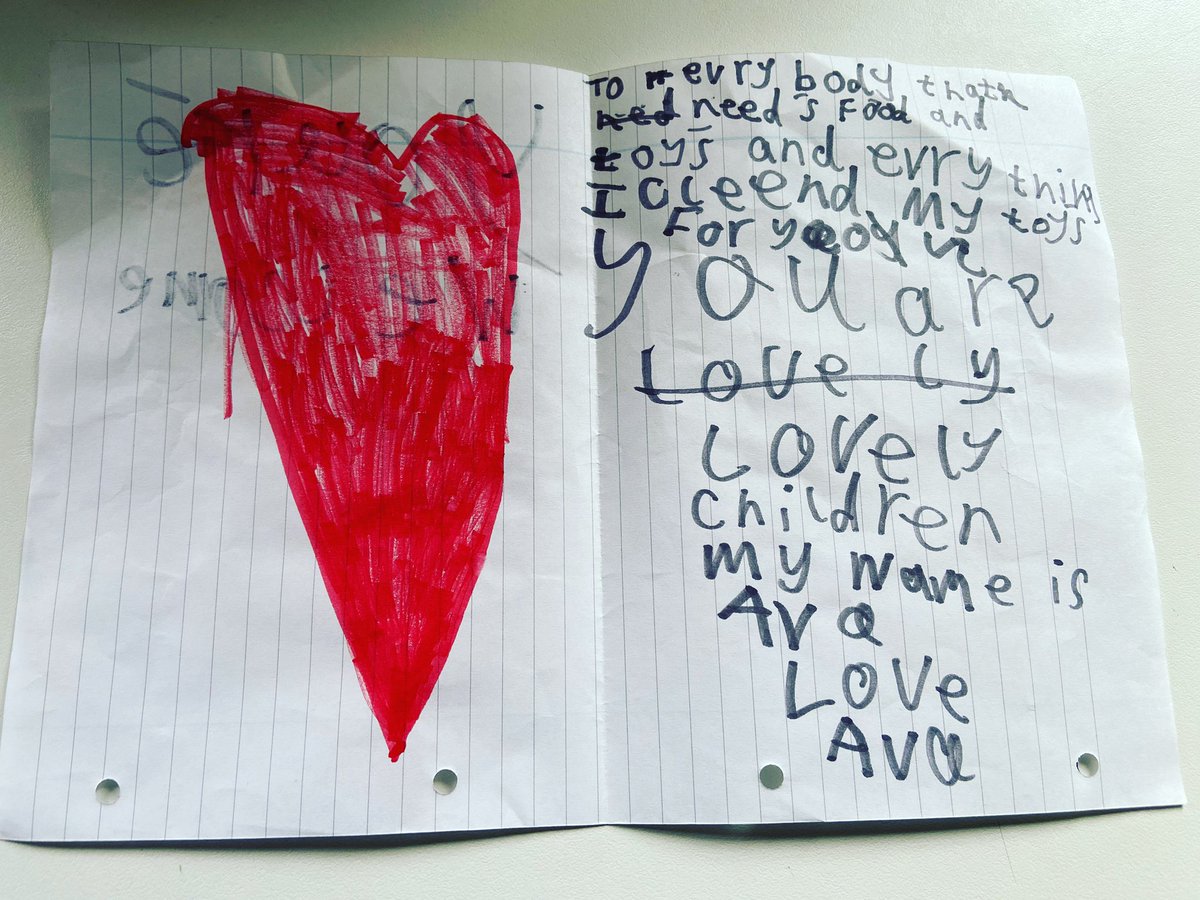 To evry body thath
need's Food and
toys and evry thing
I cleend My toys
For you
you are
Love ly
Lovely
children
my name is
Ava
Love
Ava